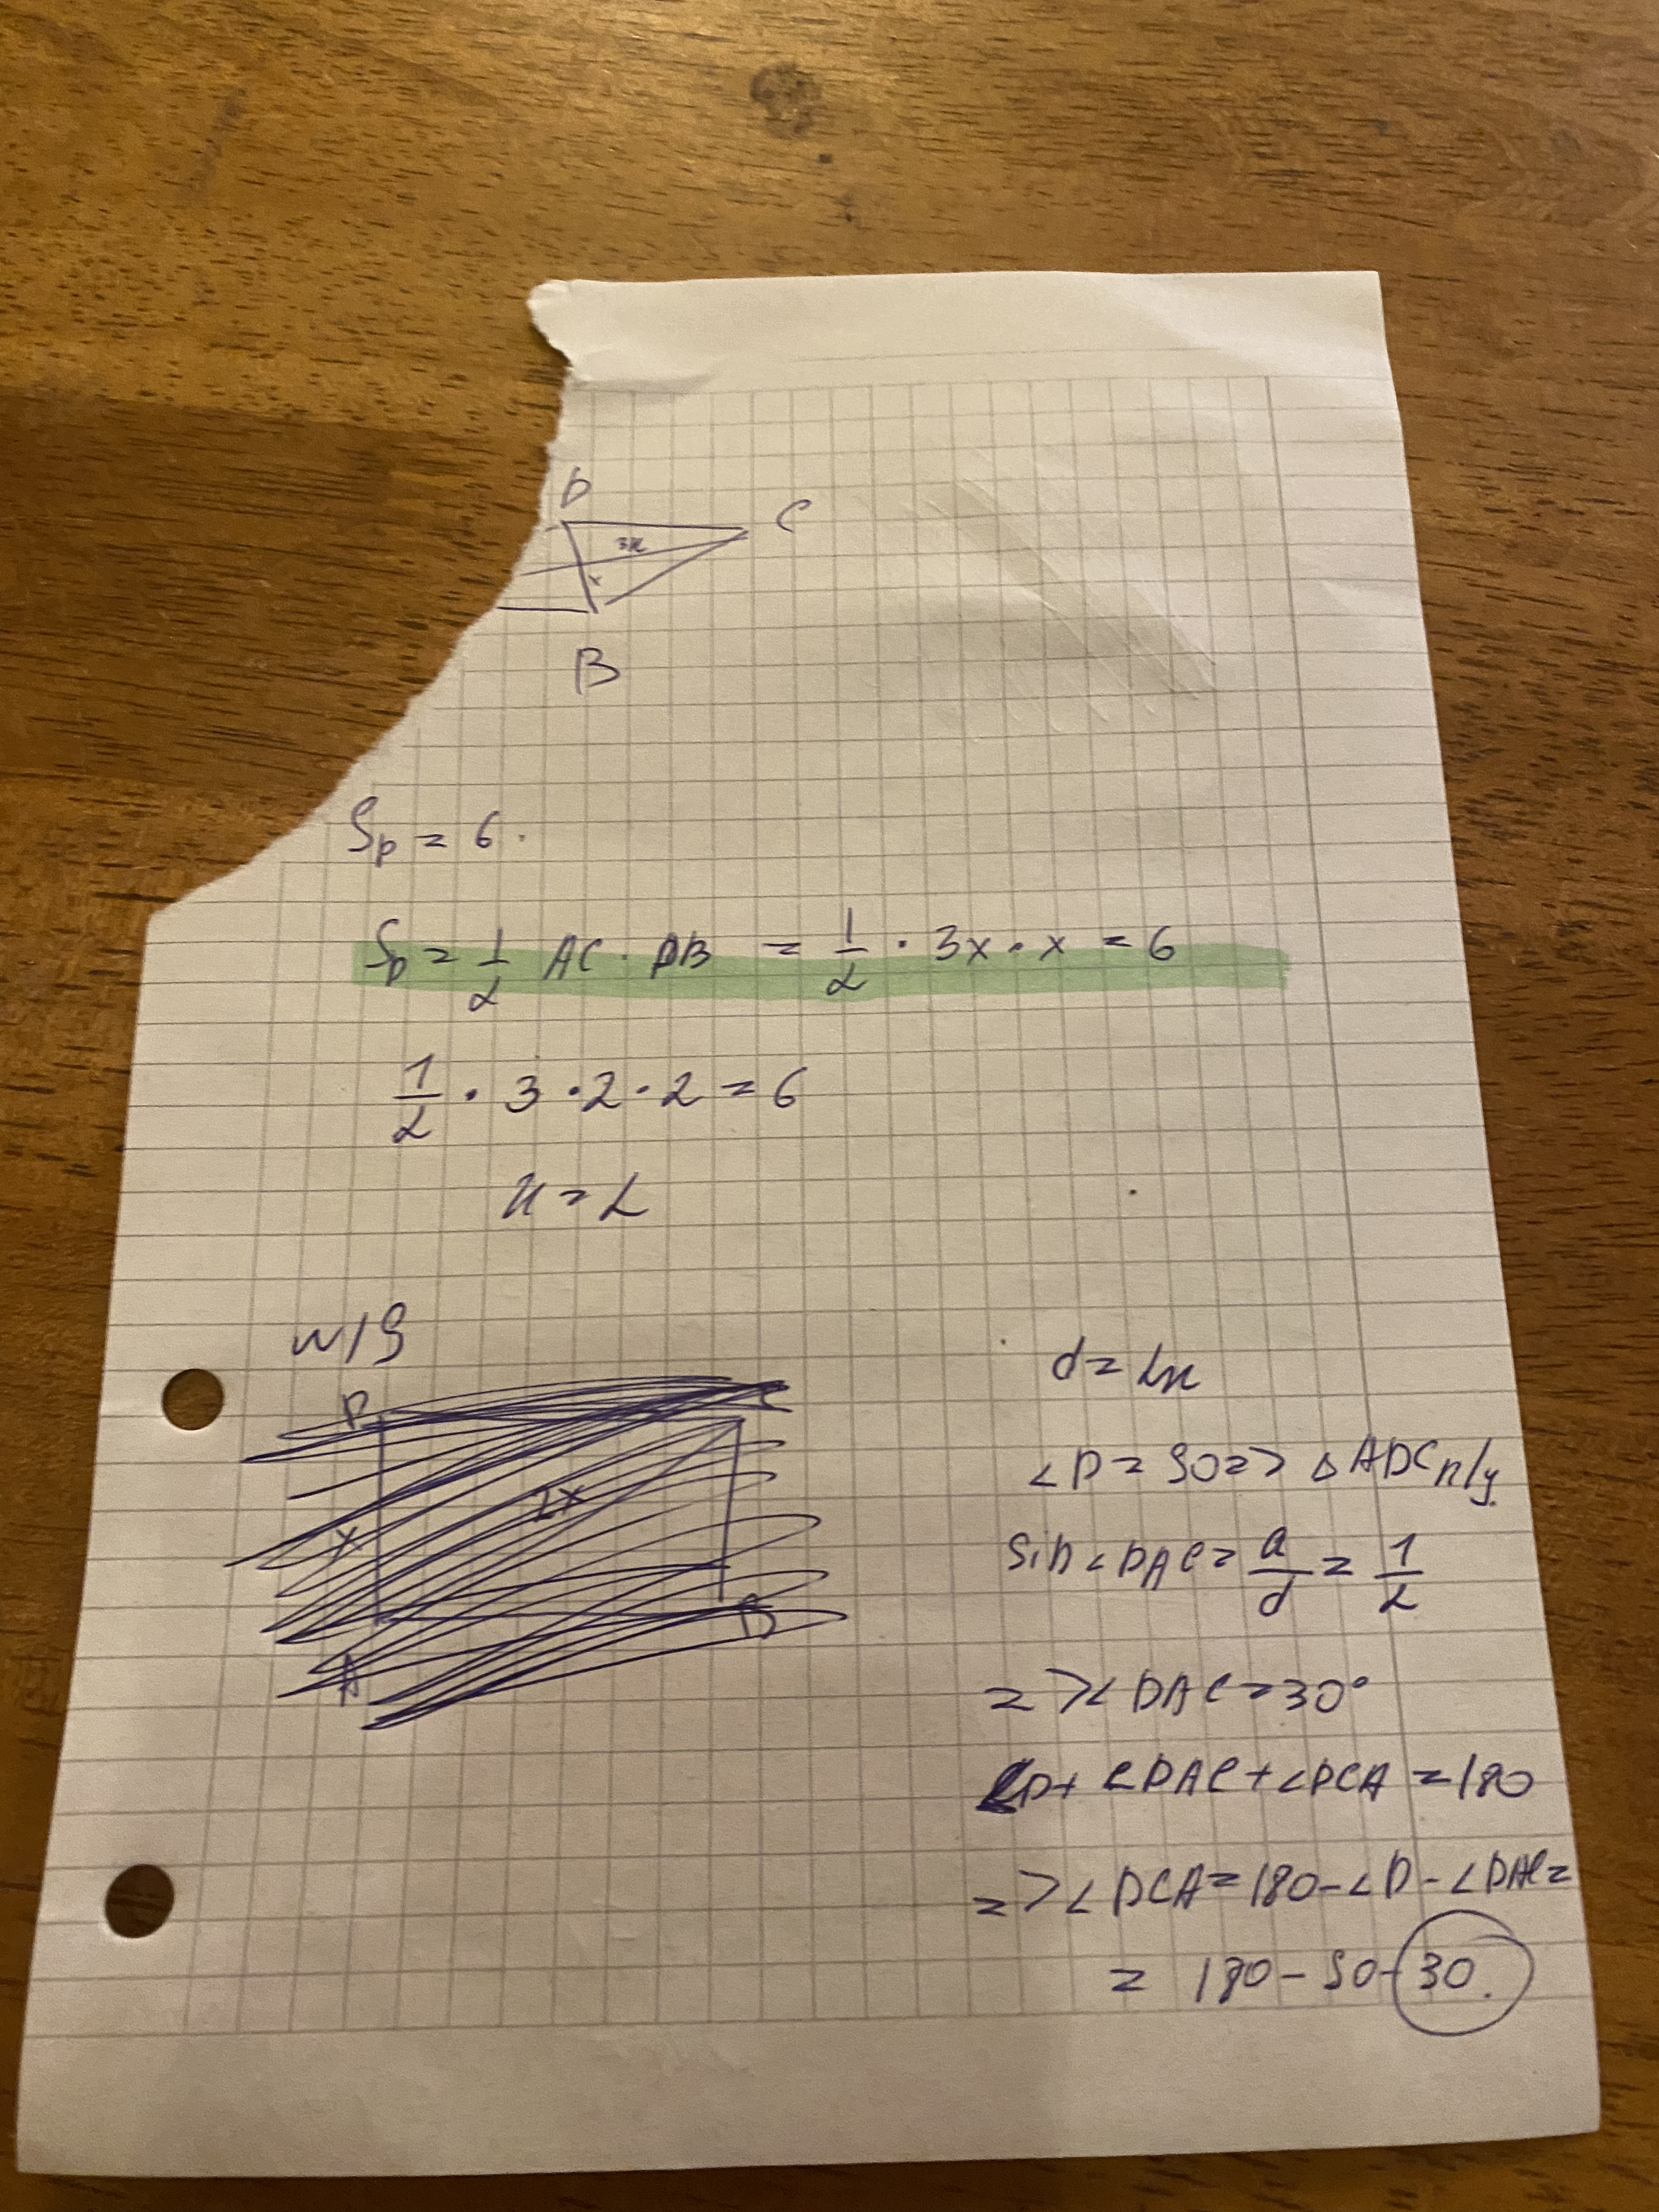 D
C
3x
x
B
Sp = 6.
Sp = 1/2 AC · DB = 1/2 · 3x · x = 6
1/2 · 3 · 2 · 2 = 6
x = 2
N19
D
C
x
2x
A
B
d = 2x
∠D = 90 => △ADC п/у.
Sin ∠DAC = a/d = 1/2
=> ∠DAC = 30°
∠D + ∠DAC + ∠DCA = 180
=> ∠DCA = 180 - ∠D - ∠DAC =
= 180 - 90 - 30.